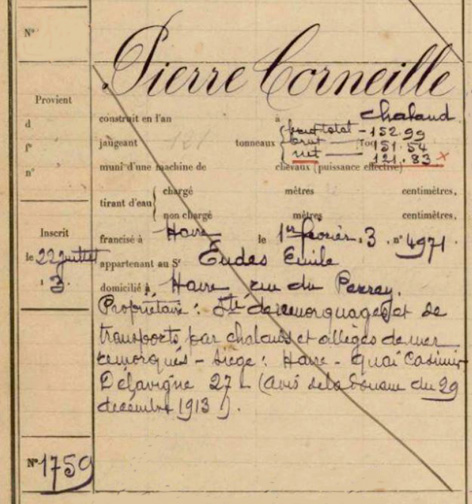 Nº
Pierre Corneille
Provient
d
fº
nº
construit en l'an à chaland
jaugeant 121 tonneaux { total - 152.99
brut - 151.54
net - 121.83 x
muni d'une machine de chevaux (puissance effective)
tirant d'eau { chargé mètres centimètres,
non chargé mètres centimètres,
francisé à Havre le 1er février . 3. nº 4971
Inscrit
le 22 juillet
. 3.
appartenant au Sr Eudes Emile
domicilié à Havre rue du Perrey.
Propriétaire : Sté de remorquages et de
transports par chalands et allèges de mer
remorqués - siège : Havre - quai Casimir
Delavigne 27 - (avis de la Douane du 29
décembre 1913).
Nº 1759